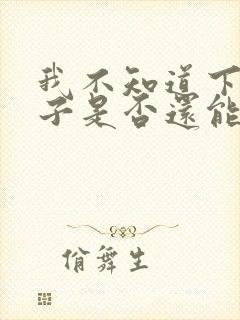 我不知道下
子是否還能
俏舞生